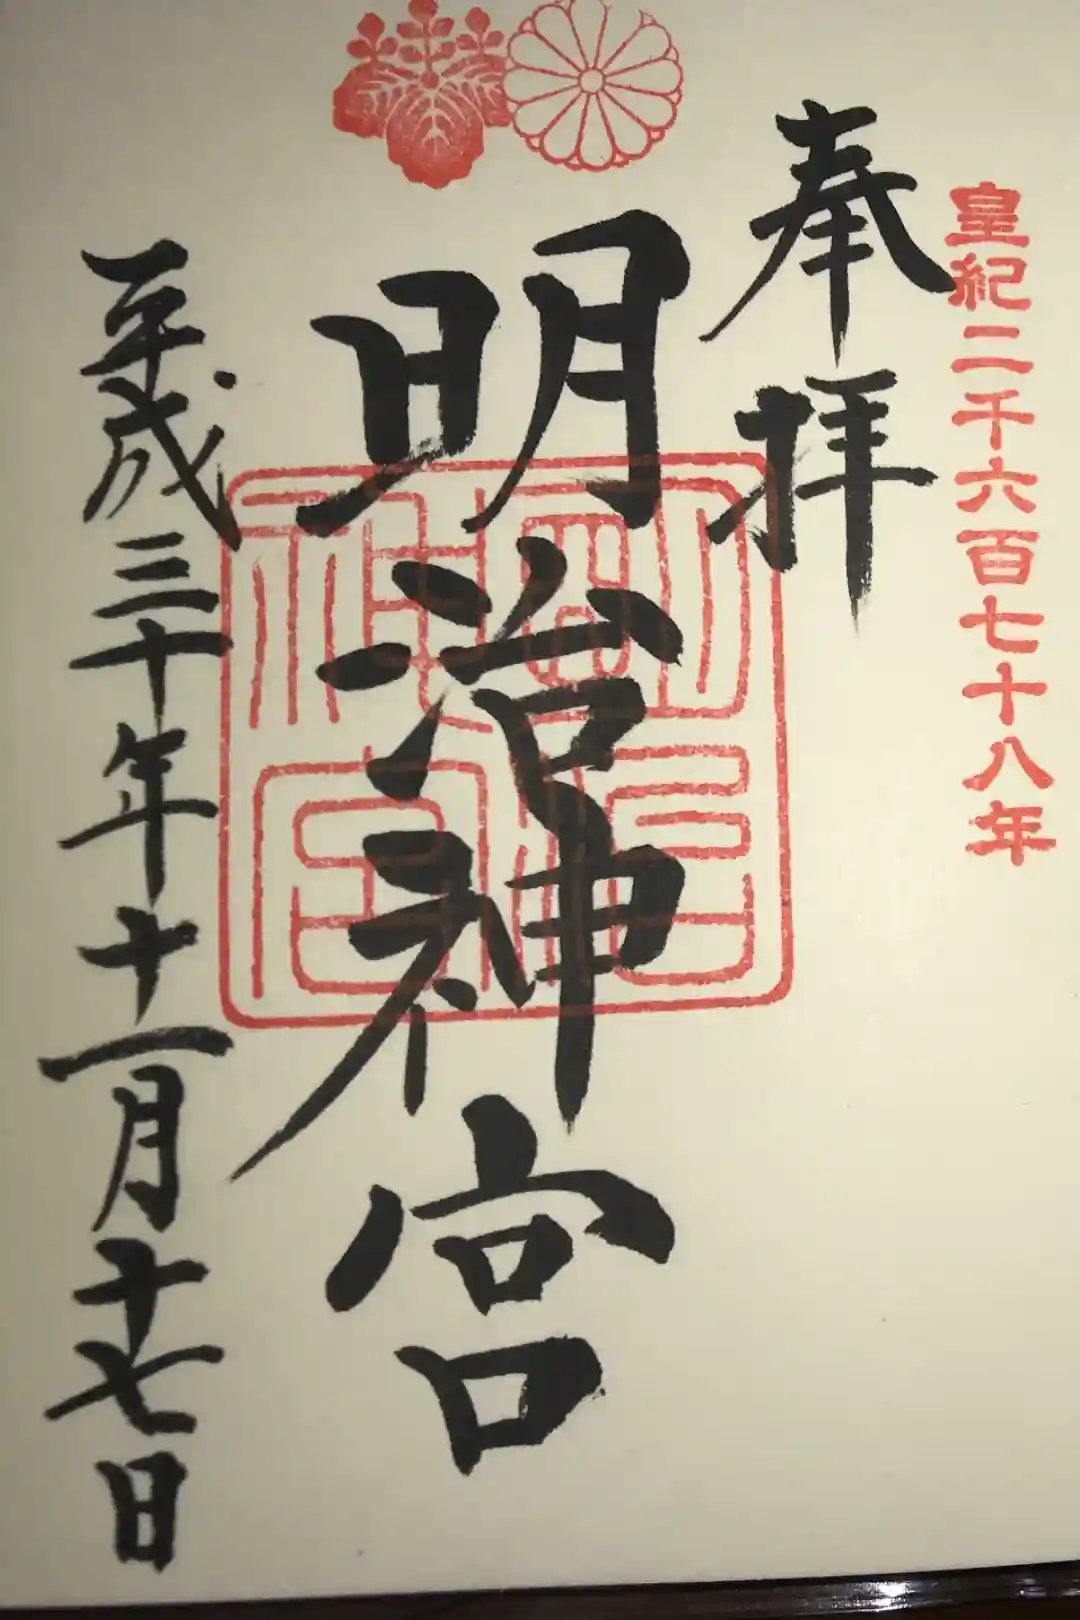 皇紀二千六百七十八年
奉拝
明治神宮
明治神宮
平成三十年十一月十七日